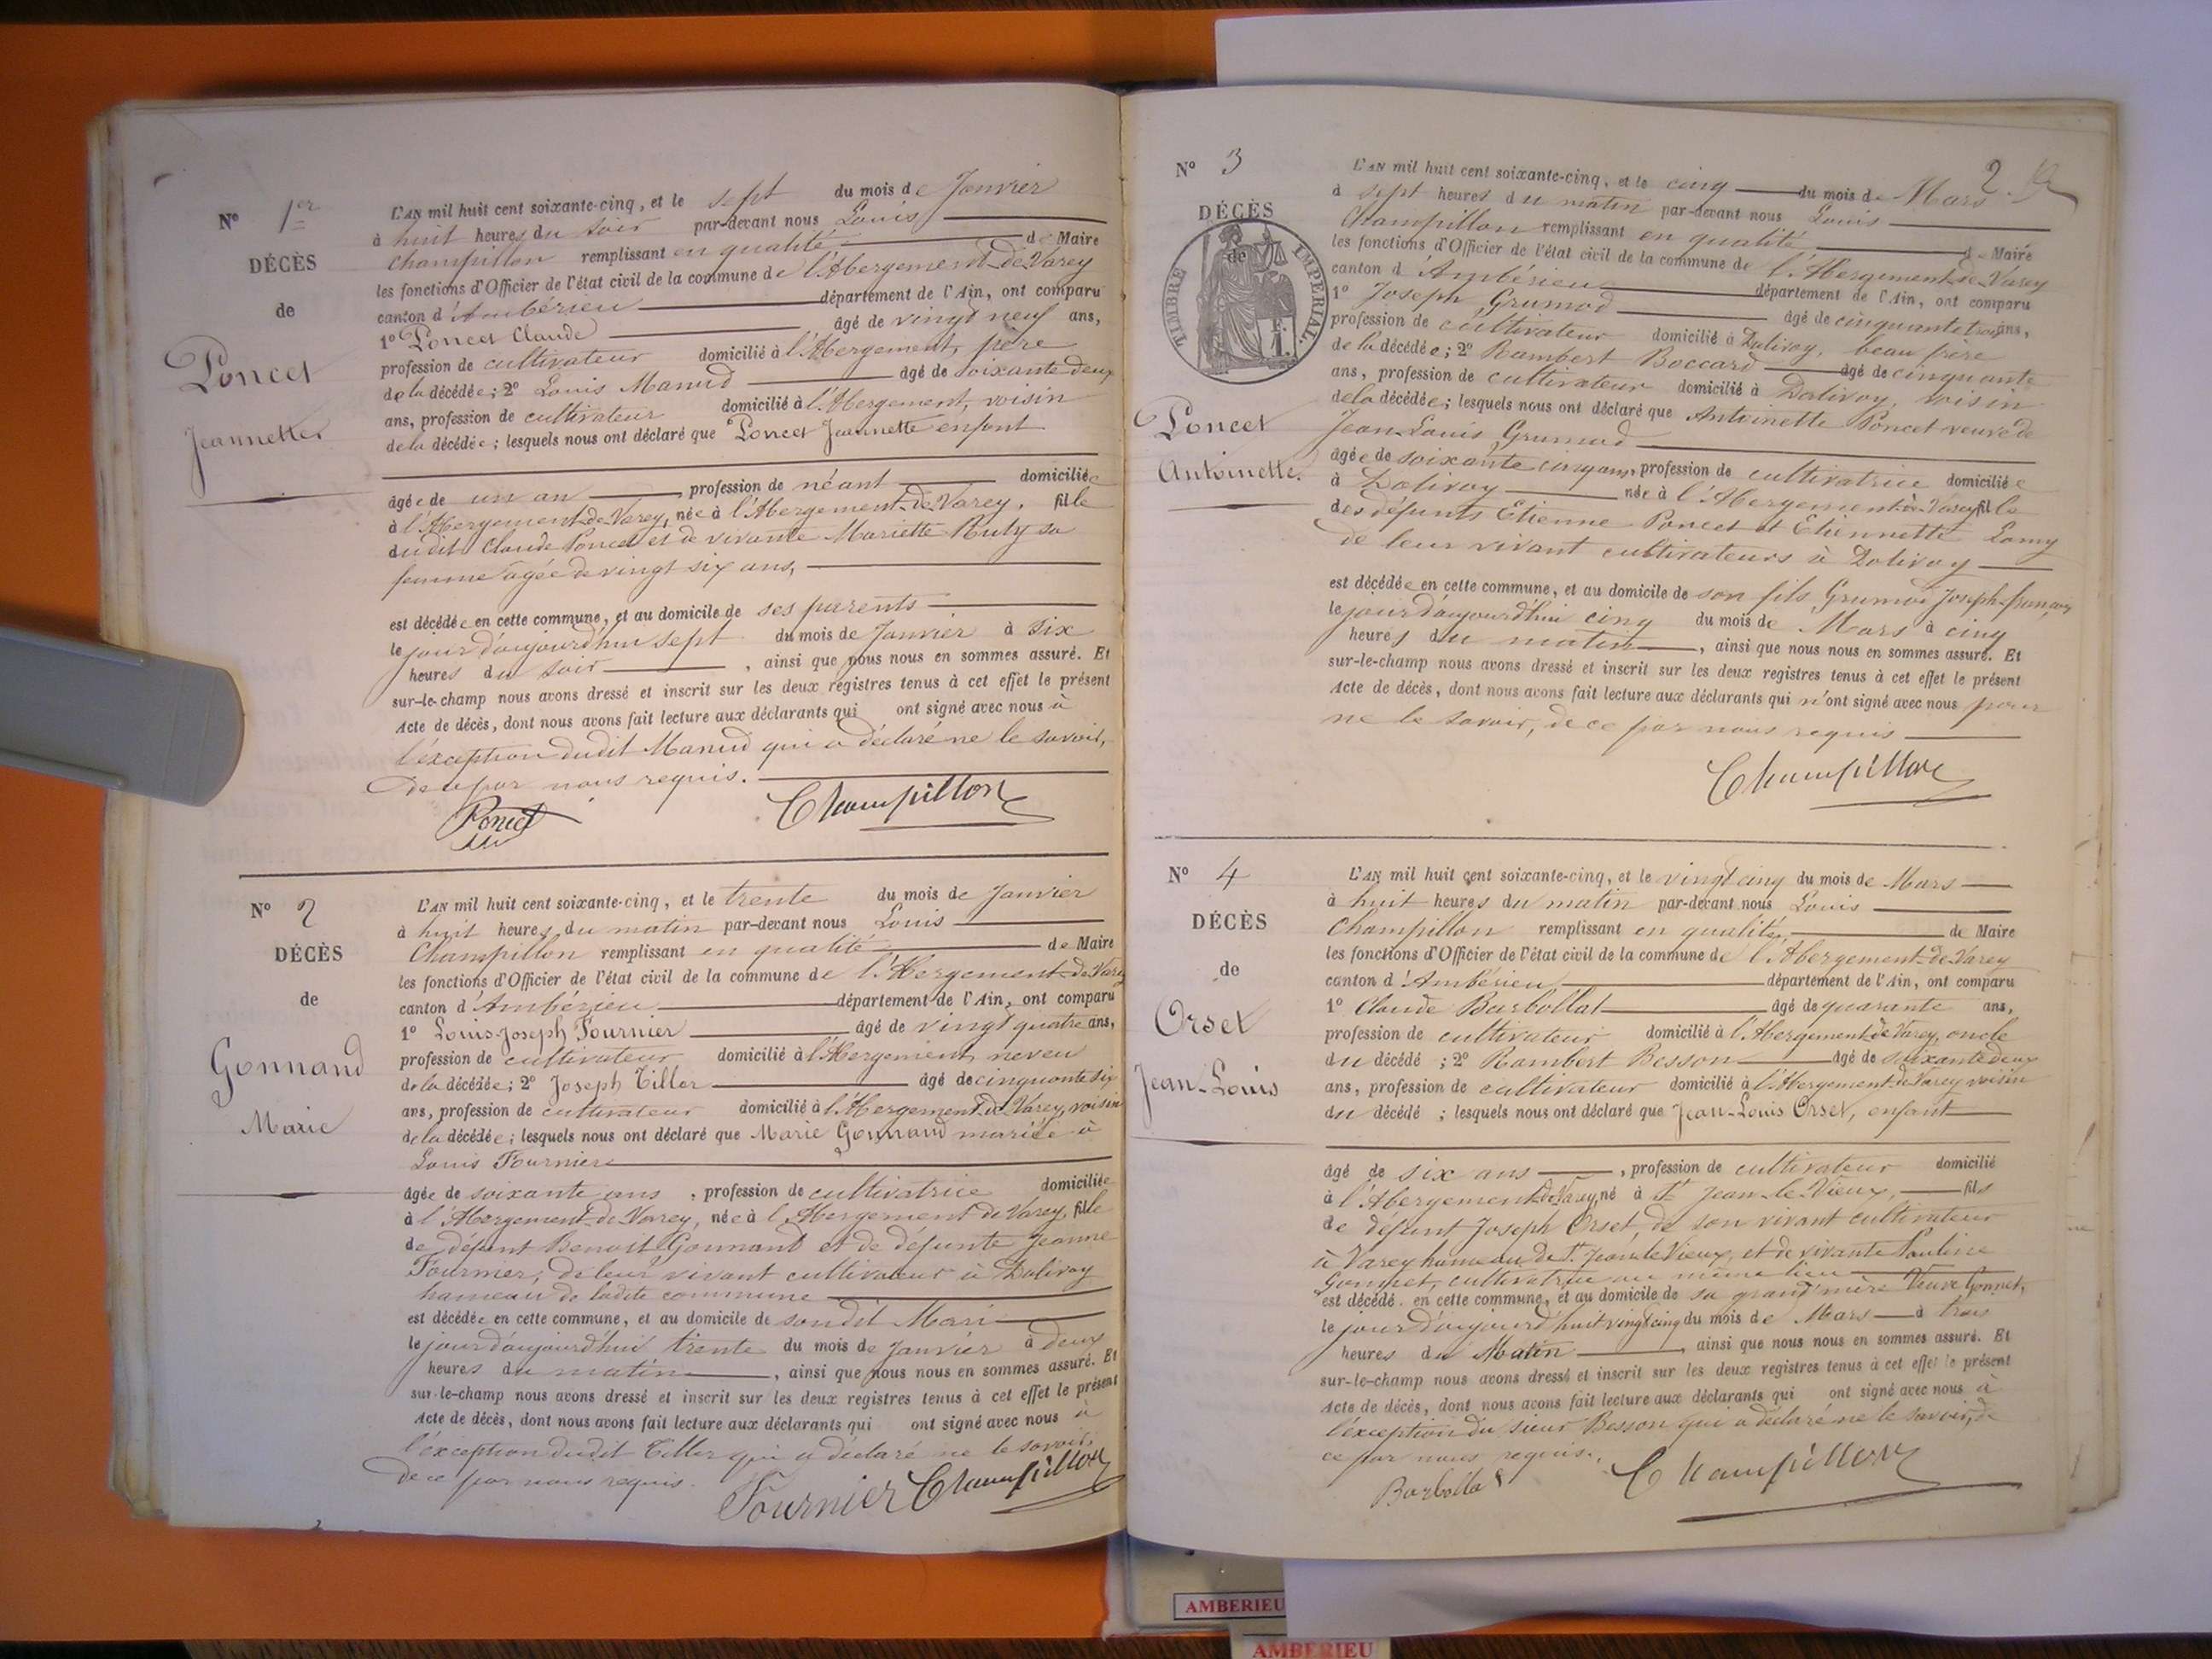 N° 1er
DÉCÈS
de
Poncet
Jeannette
L'AN mil huit cent soixante-cinq, et le sept du mois de Janvier
à huit heures du soir par-devant nous Louis
Champillon remplissant en qualité de Maire
les fonctions d'Officier de l'état civil de la commune de l'Abergement-de-Varey
canton d'Ambérieu département de l'Ain, ont comparu
1° Poncet Claude âgé de vingt neuf ans,
profession de cultivateur domicilié à l'Abergement, père
de la décédée; 2° Louis Manud âgé de soixante deux
ans, profession de cultivateur domicilié à l'Abergement, voisin
de la décédée; lesquels nous ont déclaré que Poncet Jeannette enfant
âgée de un an, profession de néant domiciliée
à l'Abergement-de-Varey, née à l'Abergement-de-Varey, fille
dudit Claude Poncet et de vivante Mariette Ruty sa
femme âgée de vingt six ans,
est décédée en cette commune, et au domicile de ses parents
le jour d'aujourd'hui sept du mois de Janvier à six
heures du soir, ainsi que nous nous en sommes assuré. Et
sur-le-champ nous avons dressé et inscrit sur les deux registres tenus à cet effet le présent
Acte de décès, dont nous avons fait lecture aux déclarants qui ont signé avec nous à
l'exception dudit Manud qui a déclaré ne le savoir,
de ce par nous requis.
Poncet Champillon
N° 2
DÉCÈS
de
Gonnand
Marie
L'AN mil huit cent soixante-cinq, et le trente du mois de Janvier
à huit heures du matin par-devant nous Louis
Champillon remplissant en qualité de Maire
les fonctions d'Officier de l'état civil de la commune de l'Abergement-de-Varey
canton d'Ambérieu département de l'Ain, ont comparu
1° Louis-Joseph Fournier âgé de vingt quatre ans,
profession de cultivateur domicilié à l'Abergement neveu
de la décédée; 2° Joseph Tiller âgé de cinquante six
ans, profession de cultivateur domicilié à l'Abergement de Varey, voisin
de la décédée; lesquels nous ont déclaré que Marie Gonnand mariée à
Louis Fournier
âgée de soixante ans, profession de cultivatrice domiciliée
à l'Abergement-de-Varey, née à l'Abergement de Varey, fille
de défunt Benoit Gonnand et de défunte Jeanne
Fournier, de leur vivant cultivateur à Dalivoy
hameau de ladite commune
est décédée en cette commune, et au domicile de son dit Mari
le jour d'aujourd'hui trente du mois de Janvier à deux
heures du matin, ainsi que nous nous en sommes assuré. Et
sur-le-champ nous avons dressé et inscrit sur les deux registres tenus à cet effet le présent
Acte de décès, dont nous avons fait lecture aux déclarants qui ont signé avec nous à
l'exception dudit Tiller qui a déclaré ne le savoir,
de ce par nous requis.
Fournier Champillon
2
N° 3
DÉCÈS
de
TIMBRE IMPERIAL
Poncet
Antoinette.
L'AN mil huit cent soixante-cinq, et le cinq du mois de Mars
à sept heures du matin par-devant nous Louis
Champillon remplissant en qualité de Maire
les fonctions d'Officier de l'état civil de la commune de l'Abergement-de-Varey
canton d'Ambérieu département de l'Ain, ont comparu
1° Joseph Grumod âgé de cinquante trois ans,
profession de cultivateur domicilié à Dalivoy, beau frère
de la décédée; 2° Rambert Boccard âgé de cinquante
ans, profession de cultivateur domicilié à Dalivoy, voisin
de la décédée; lesquels nous ont déclaré que Antoinette Poncet veuve de
Jean-Louis Grumod
âgée de soixante cinq ans, profession de cultivatrice domiciliée
à Dalivoy née à l'Abergement-de-Varey fille
des défunts Etienne Poncet et Etiennette Lamy
de leur vivant cultivateurs à Dalivoy
est décédée en cette commune, et au domicile de son fils Grumod Joseph-françois
le jour d'aujourd'hui cinq du mois de Mars à cinq
heures du matin, ainsi que nous nous en sommes assuré. Et
sur-le-champ nous avons dressé et inscrit sur les deux registres tenus à cet effet le présent
Acte de décès, dont nous avons fait lecture aux déclarants qui n'ont signé avec nous pour
ne le savoir, de ce par nous requis
Champillon
N° 4
DÉCÈS
de
Orset
Jean-Louis
L'AN mil huit cent soixante-cinq, et le vingt cinq du mois de Mars
à huit heures du matin par-devant nous Louis
Champillon remplissant en qualité de Maire
les fonctions d'Officier de l'état civil de la commune de l'Abergement-de-Varey
canton d'Ambérieu département de l'Ain, ont comparu
1° Claude Barbollat âgé de quarante ans,
profession de cultivateur domicilié à l'Abergement de Varey, oncle
du décédé; 2° Rambert Besson âgé de soixante deux
ans, profession de cultivateur domicilié à l'Abergement-de-Varey voisin
du décédé; lesquels nous ont déclaré que Jean-Louis Orset, enfant
âgé de six ans, profession de cultivateur domicilié
à l'Abergement-de-Varey, né à St Jean-le-Vieux, fils
de défunt Joseph Orset, de son vivant cultivateur
à Varey hameau de St. Jean le Vieux, et de vivante Pauline
Gonnet, cultivatrice au même lieu
est décédé en cette commune, et au domicile de sa grand'mère Veuve Gonnet,
le jour d'aujourd'huit vingt cinq du mois de Mars à trois
heures du Matin ainsi que nous nous en sommes assuré. Et
sur-le-champ nous avons dressé et inscrit sur les deux registres tenus à cet effet le présent
Acte de décès, dont nous avons fait lecture aux déclarants qui ont signé avec nous à
l'exception du sieur Besson qui a déclaré ne le savoir, de
ce par nous requis.
Barbollat Champillon
AMBERIEU
AMBERIEU